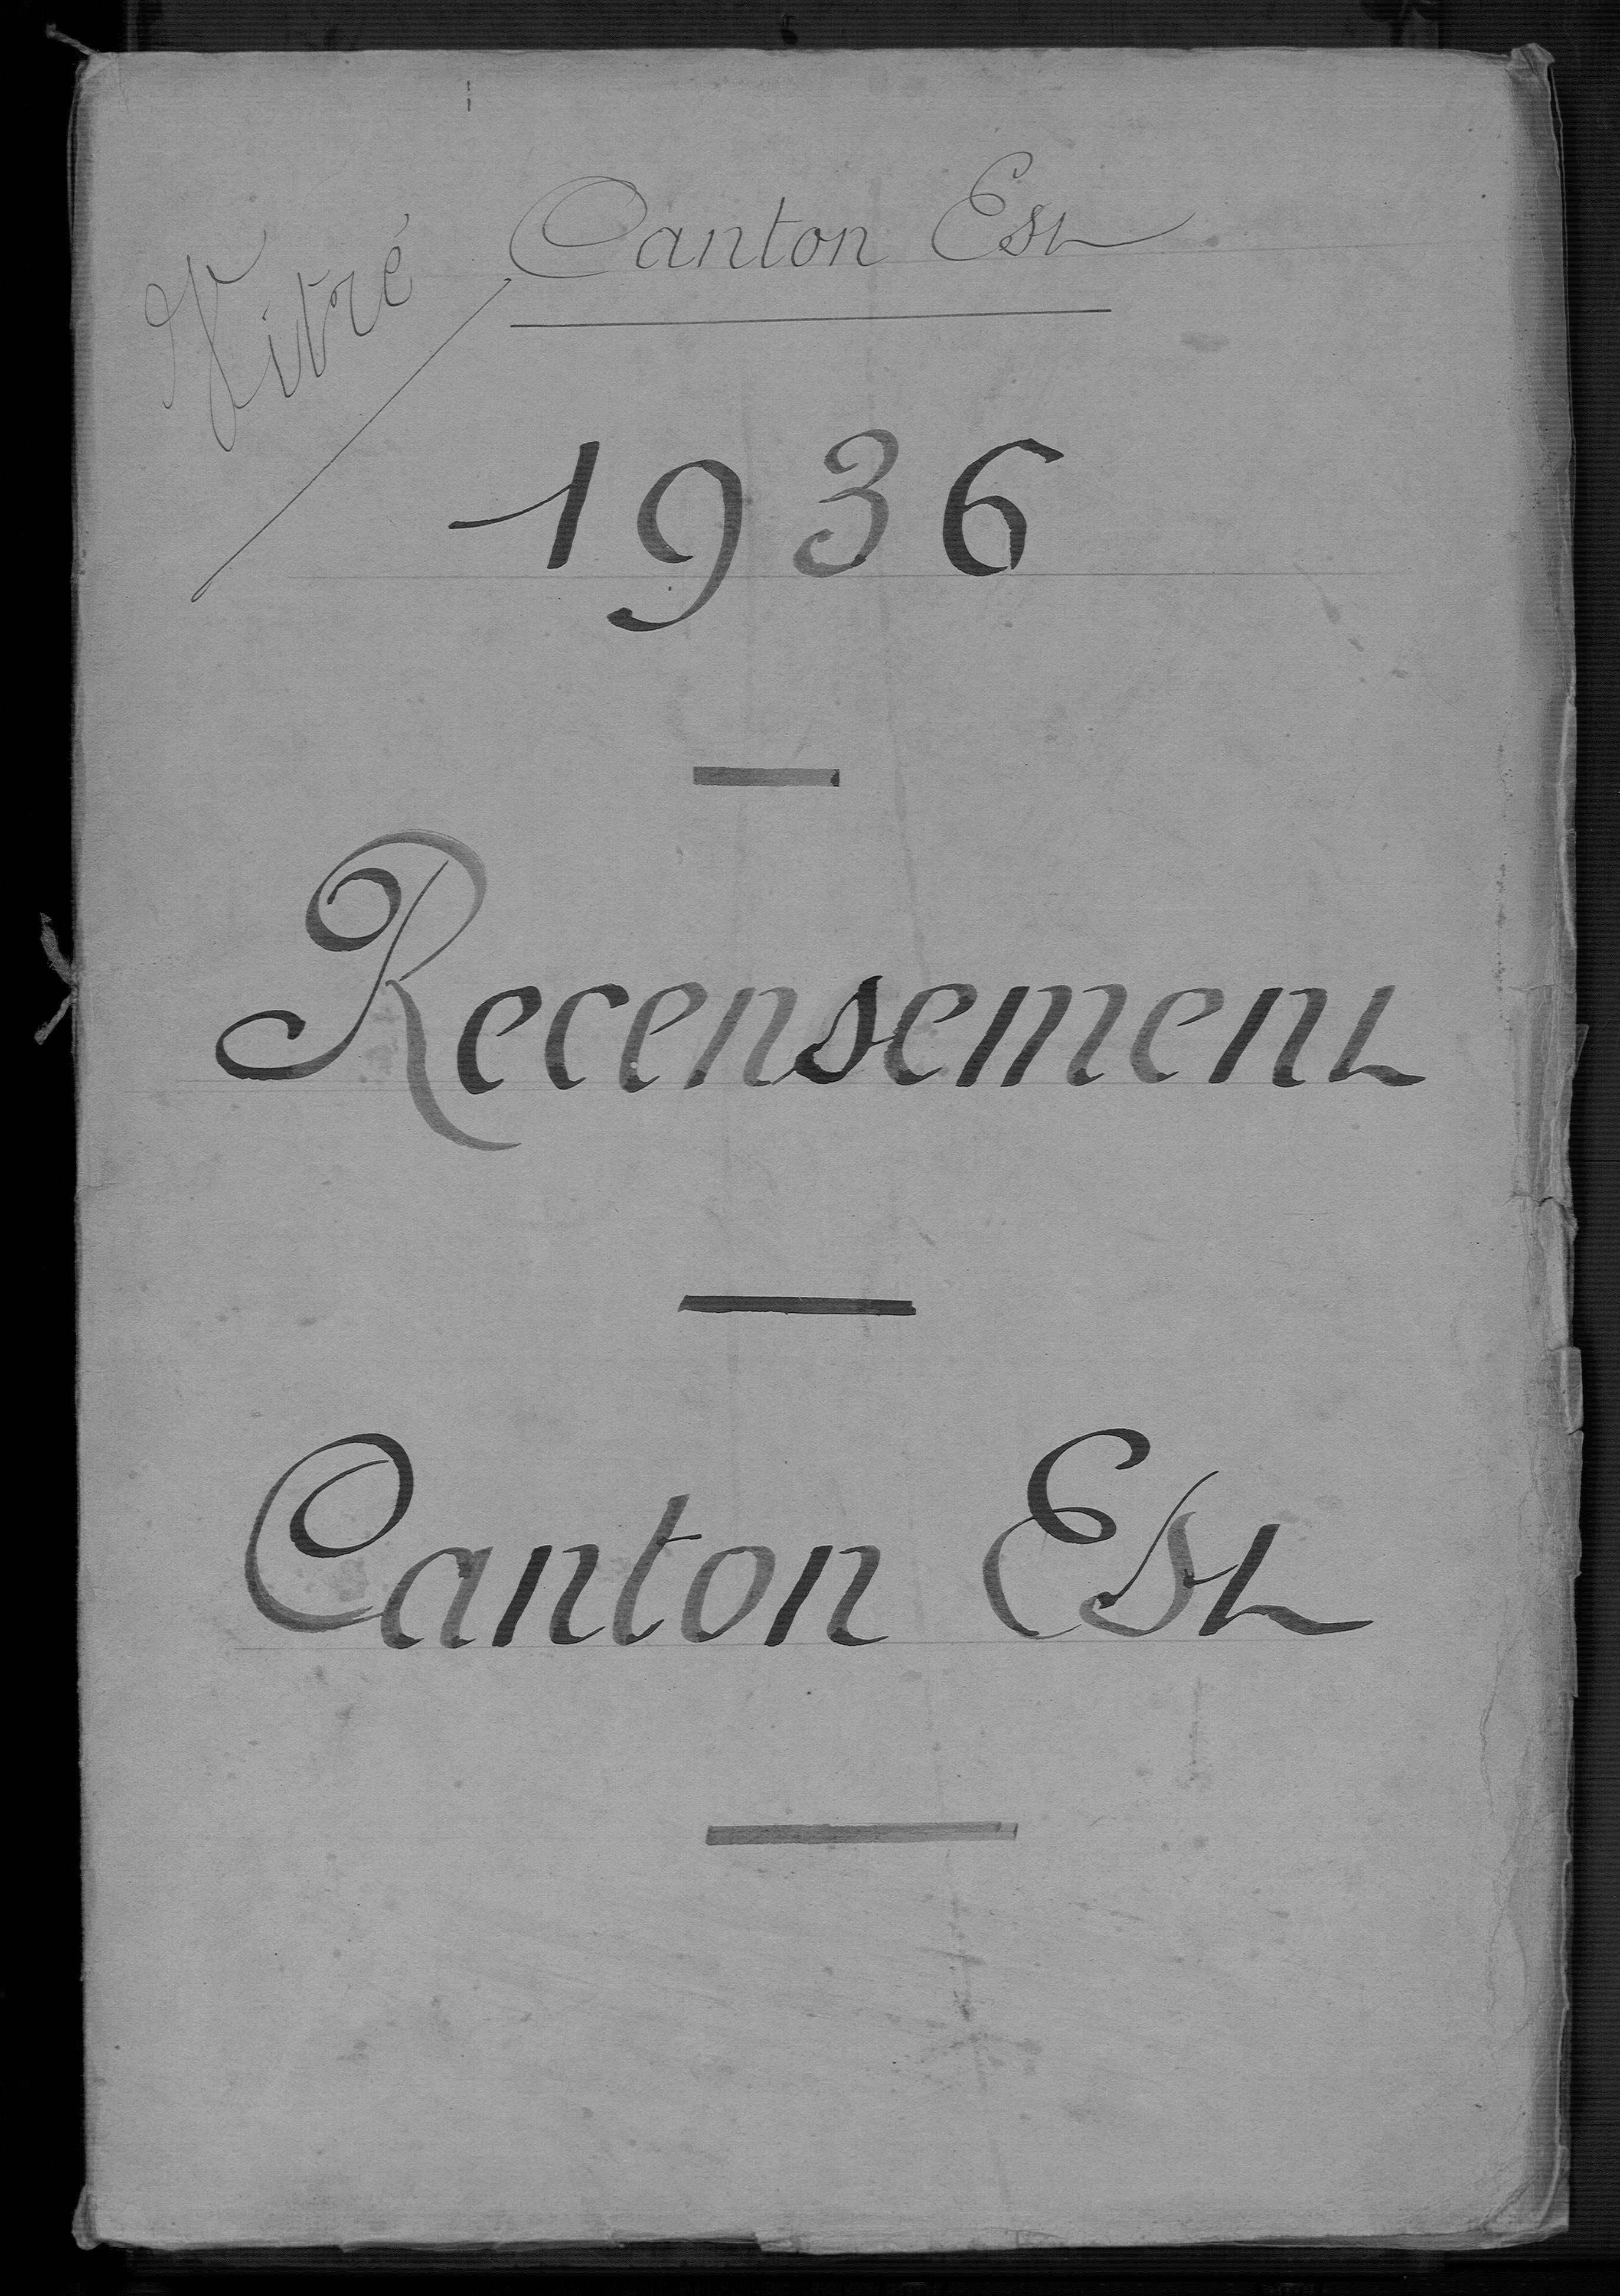 Vitré
Canton Est
1936
Recensement
Canton Est